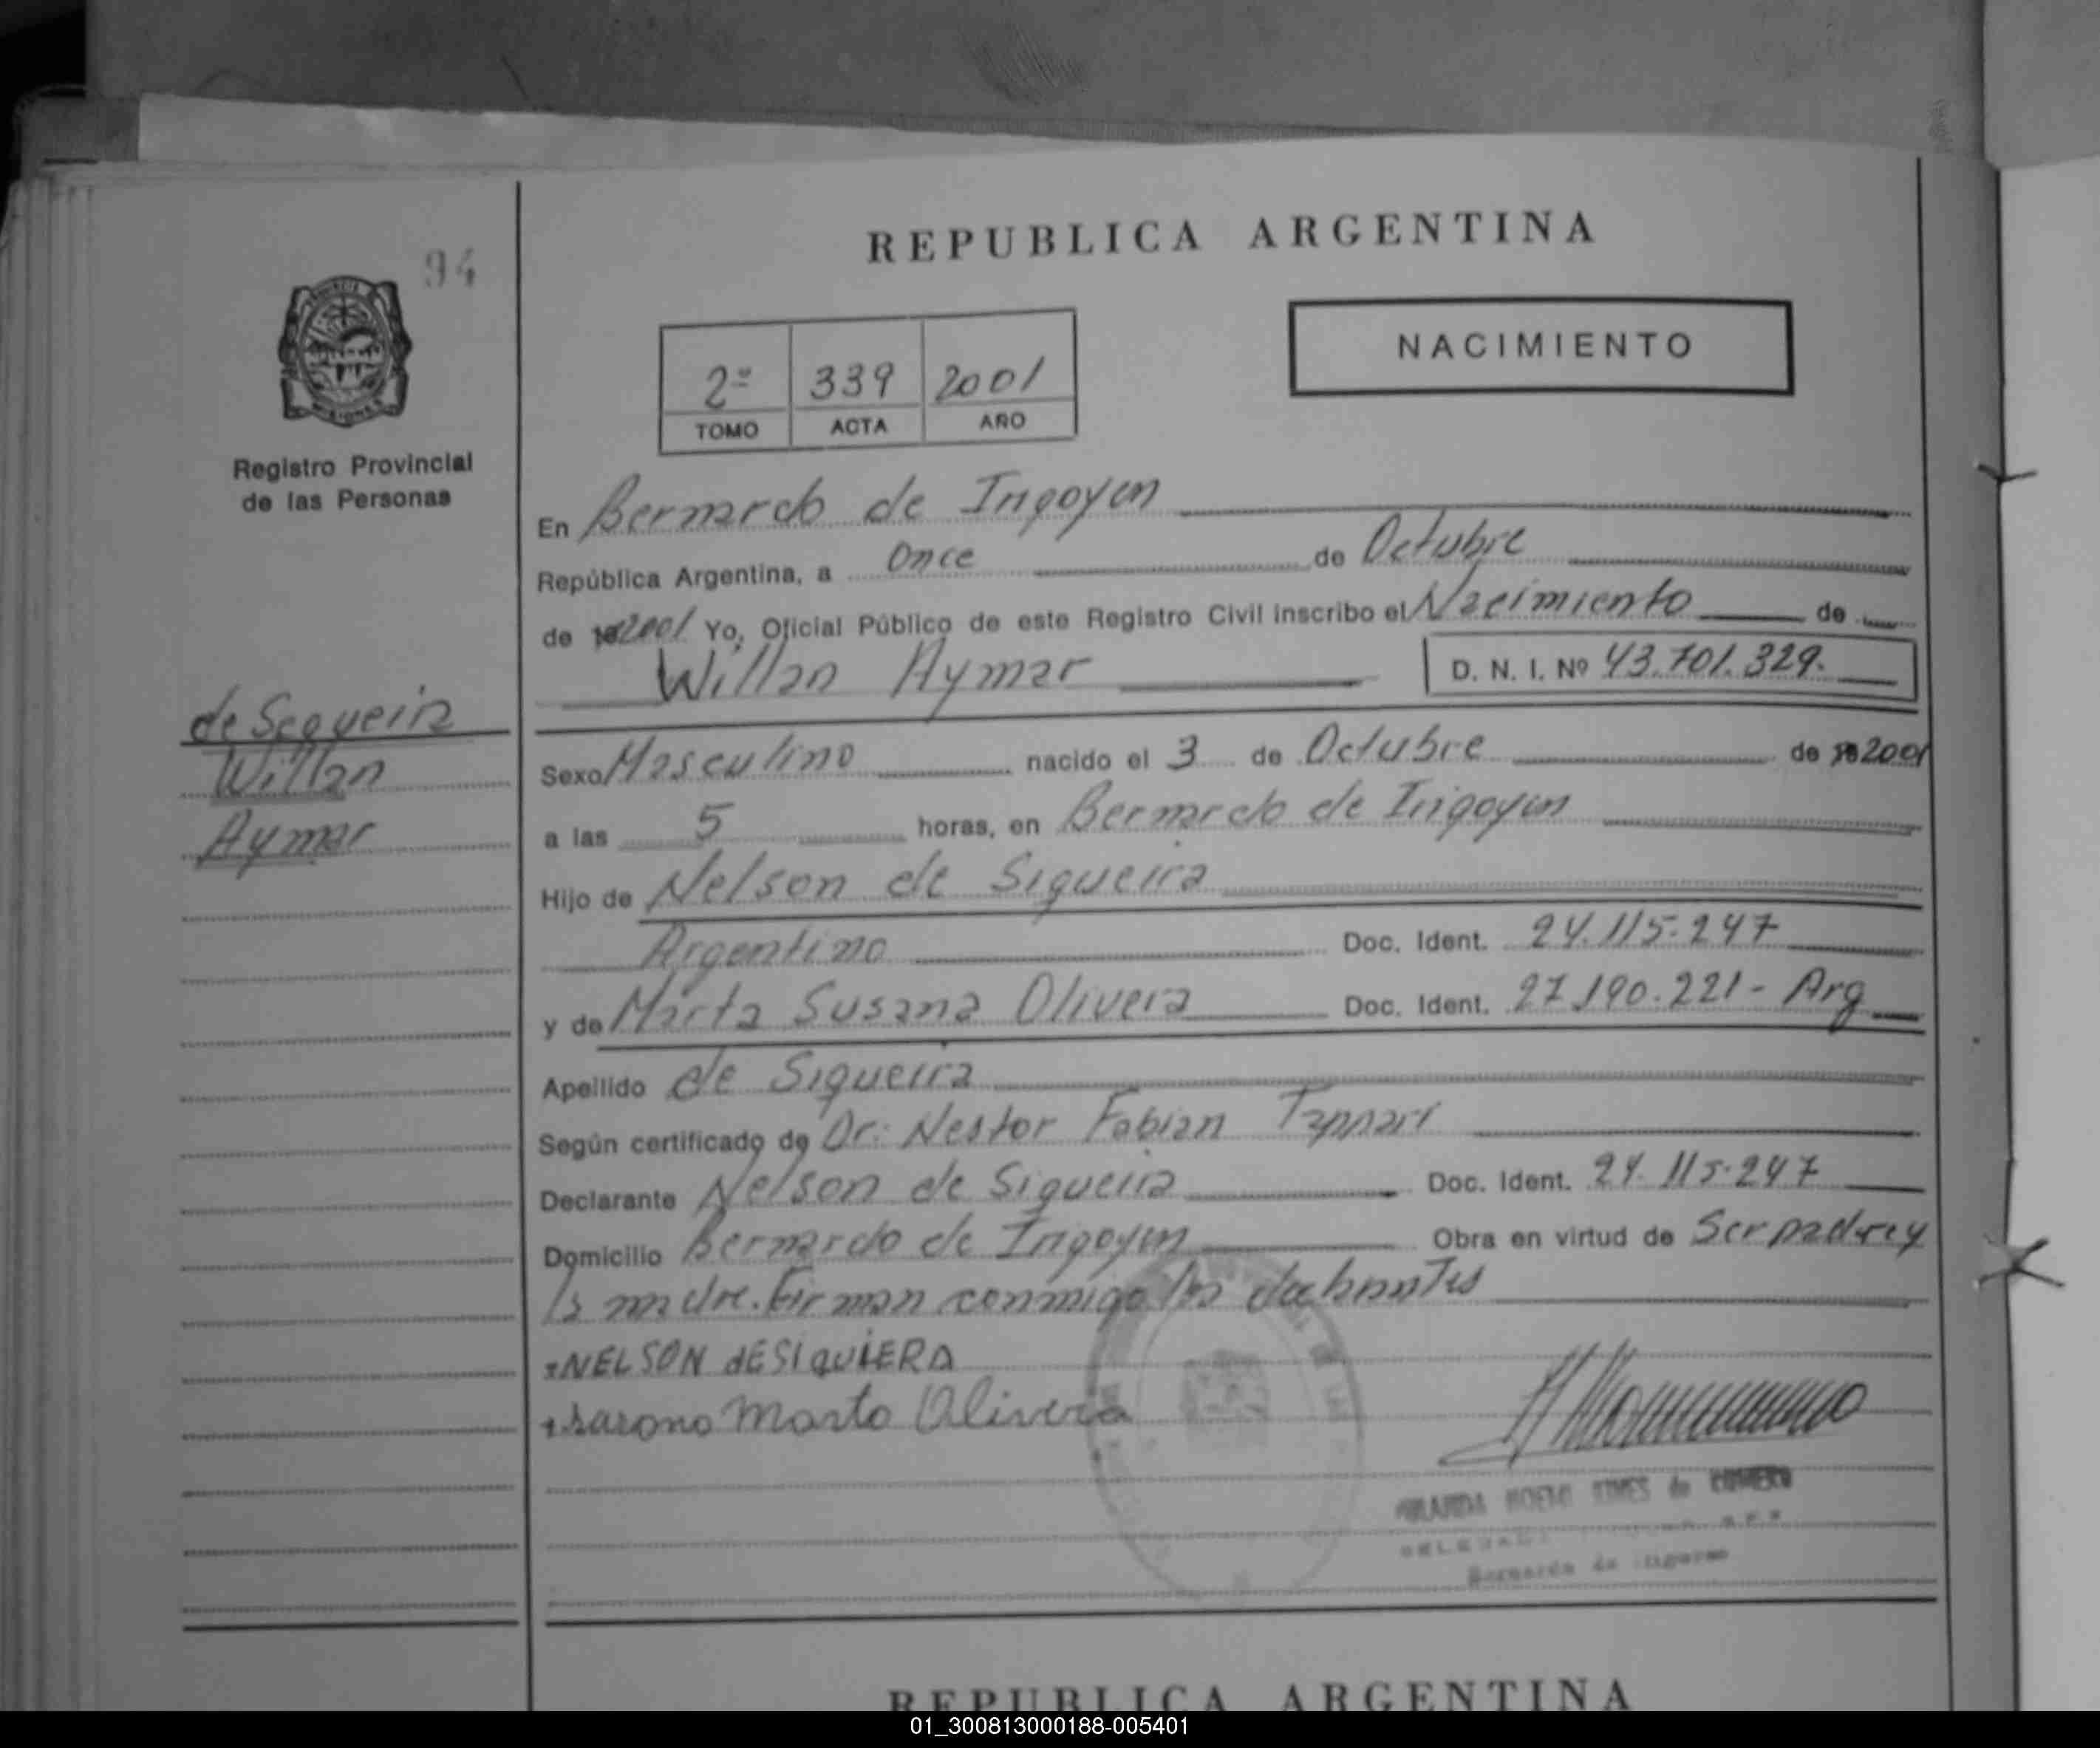 REPUBLICA ARGENTINA
94
NACIMIENTO
2º 339 2001
TOMO ACTA AÑO
Registro Provincial
de las Personas
En Bernardo de Irigoyen
República Argentina, a Once de Octubre
de 2001 Yo, Oficial Público de este Registro Civil inscribo el Nacimiento de
Willan Aymar D. N. I. Nº 43.701.329.
de Sequeira
Willan
Aymar
Sexo Masculino nacido el 3 de Octubre de 2001
a las 5 horas, en Bernardo de Irigoyen
Hijo de Nelson de Siqueira
Argentino Doc. Ident. 24.115.247
y de Marta Susana Olivera Doc. Ident. 27.190.221- Arg
Apellido de Siqueira
Según certificado de Dr. Nestor Fabian
Declarante Nelson de Siqueira Doc. Ident. 24.115.247
Domicilio Bernardo de Irigoyen Obra en virtud de Ser padre y
la madre. Firman conmigo los
NELSON dESIQUIERA
Marta Olivera
de
Bernardo de Irigoyen
REPUBLICA ARGENTINA
01_300813000188-005401